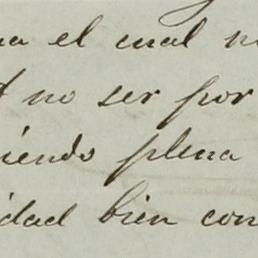 na el cual n
no ser por
iendo plena
idad bien con